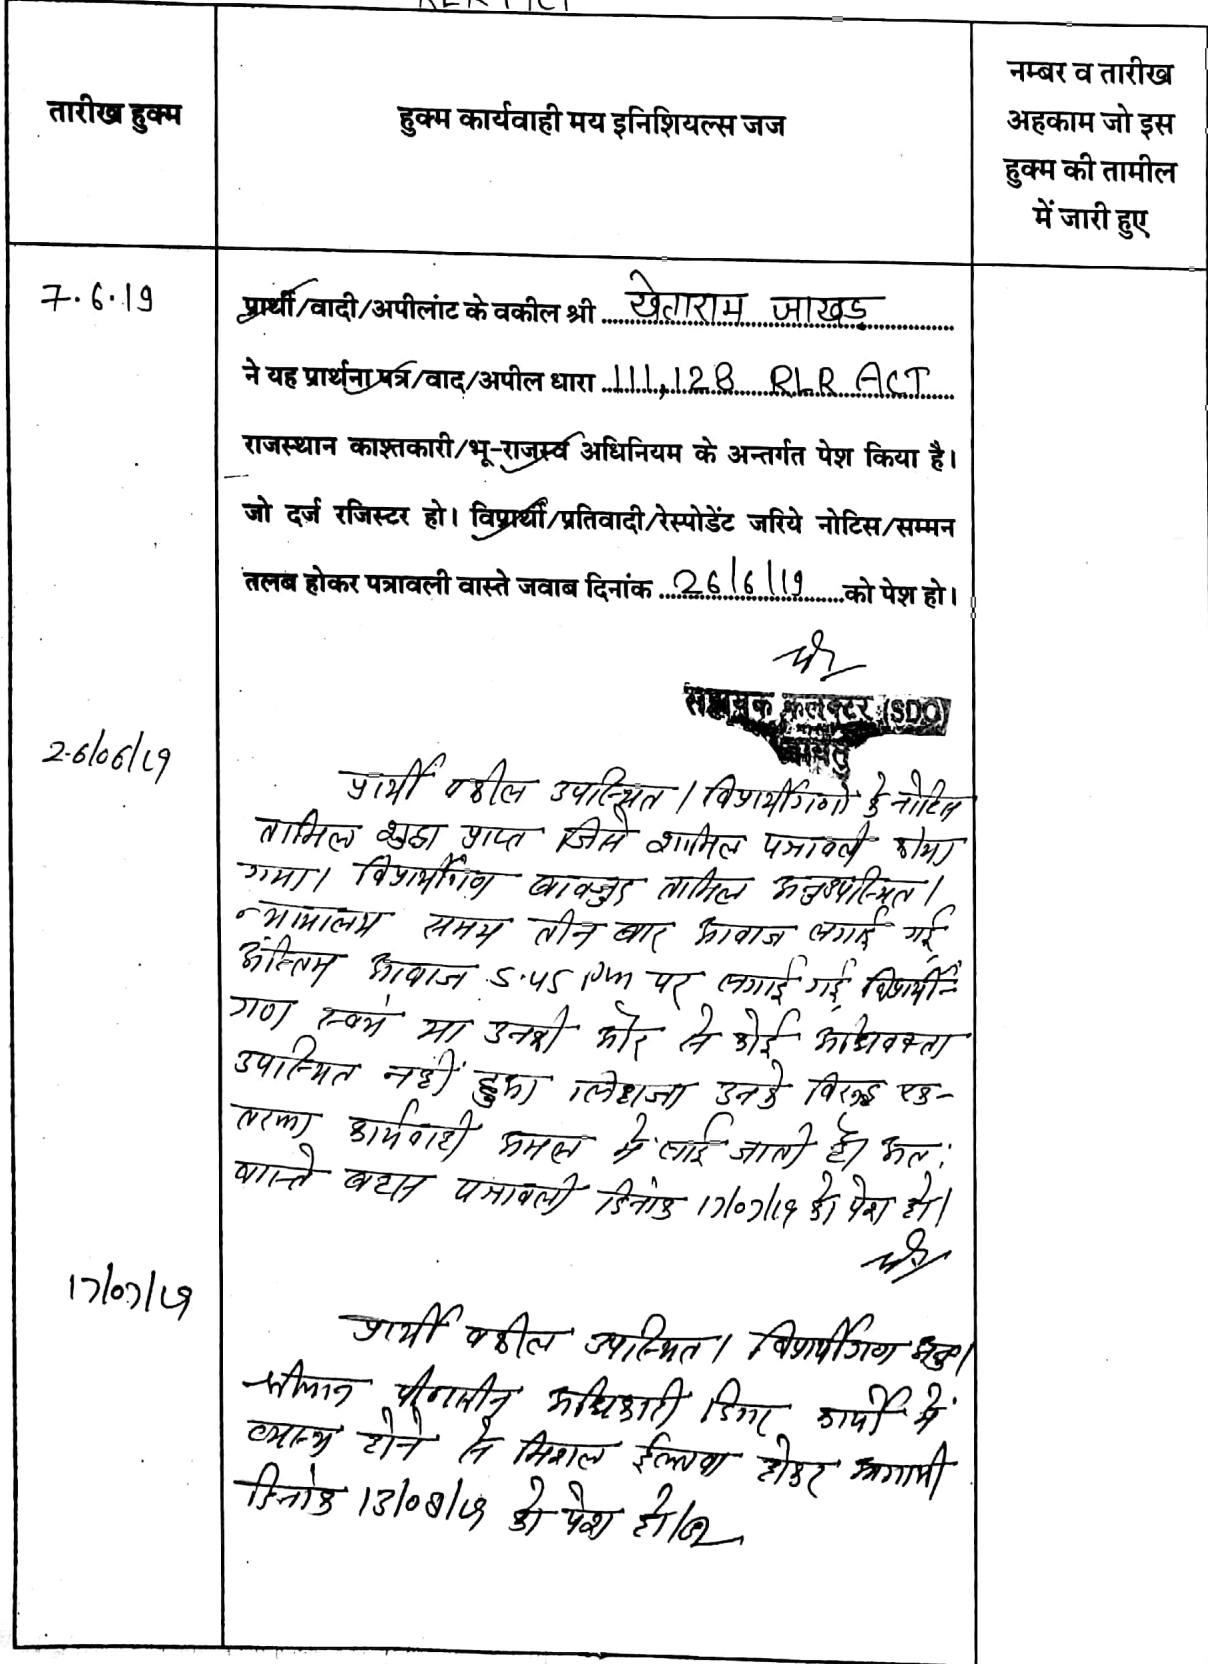 तारीख हुक्म
हुक्म कार्यवाही मय इनिशियल्स जज
नम्बर व तारीख
अहकाम जो इस
हुक्म की तामील
में जारी हुए
7.6.19
प्रार्थी/वादी/अपीलांट के वकील श्री खेताराम जाखड़
ने यह प्रार्थना पत्र/वाद/अपील धारा 111,128 RLR ACT
राजस्थान काश्तकारी/भू-राजस्व अधिनियम के अन्तर्गत पेश किया है।
जो दर्ज रजिस्टर हो। विप्रार्थी/प्रतिवादी/रेस्पोडेंट जरिये नोटिस/सम्मन
तलब होकर पत्रावली वास्ते जवाब दिनांक 26/6/19 को पेश हो।
सहायक कलक्टर (SDO)
26/06/19
प्रार्थी वकील उपस्थित। विप्रार्थीगणों के नोटिस
तामिल शुदा प्राप्त जिसे शामिल पत्रावली कीया
गया। विप्रार्थीगण बावजुद तामिल अनुउपस्थित।
न्यायालय समय तीन बार आवाज लगाई गई,
अन्तिम आवाज 5.45 Pm पर लगाई गई, विप्रार्थी-
गण स्वयं या उनकी ओर से कोई अधिवक्ता
उपस्थित नहीं हुआ। लिहाजा उनके विरूद्ध एक-
तरफा कार्यवाही अमल में लाई जाती है। अतः
वास्ते बहस पत्रावली दिनांक 17/07/19 को पेश हो।
17/07/19
प्रार्थी वकील उपस्थित। विप्रार्थीगण अनु।
श्रीमान पीठासीन अधिकारी दिगर कार्यो में
व्यस्त होने से मिशल ईल्तवा होकर आगामी
दिनांक 13/08/19 को पेश हो।